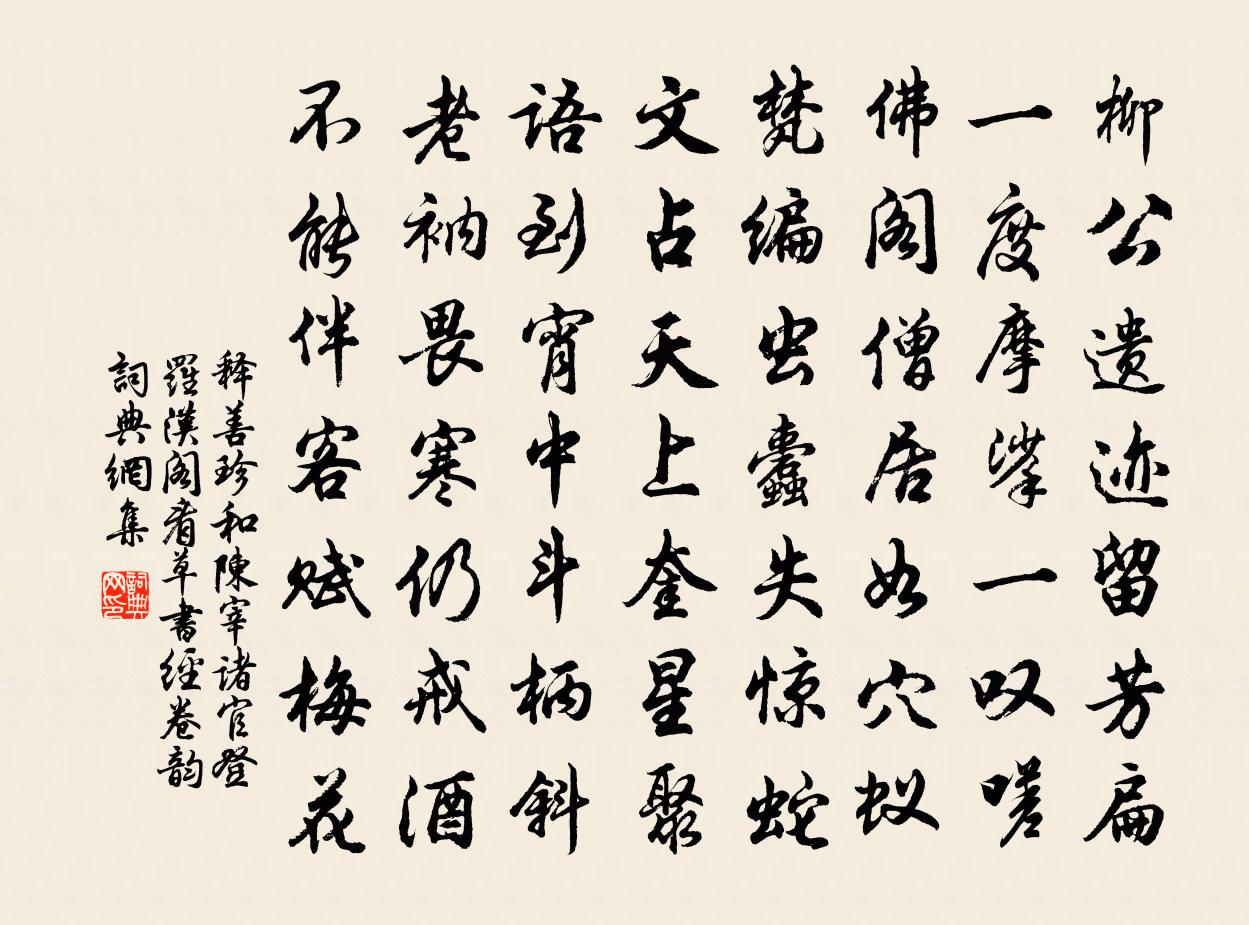 柳公遗迹留芳扁
一度摩挲一叹嗟
佛阁僧居如穴蚁
梵编虫蠹失惊蛇
文占天上奎星聚
语到宵中斗柄斜
老衲畏寒仍戒酒
不能伴客赋梅花
释善珍和陳宰诸官登
羅漢阁看草書經卷韵
詞典網集
詞典网印